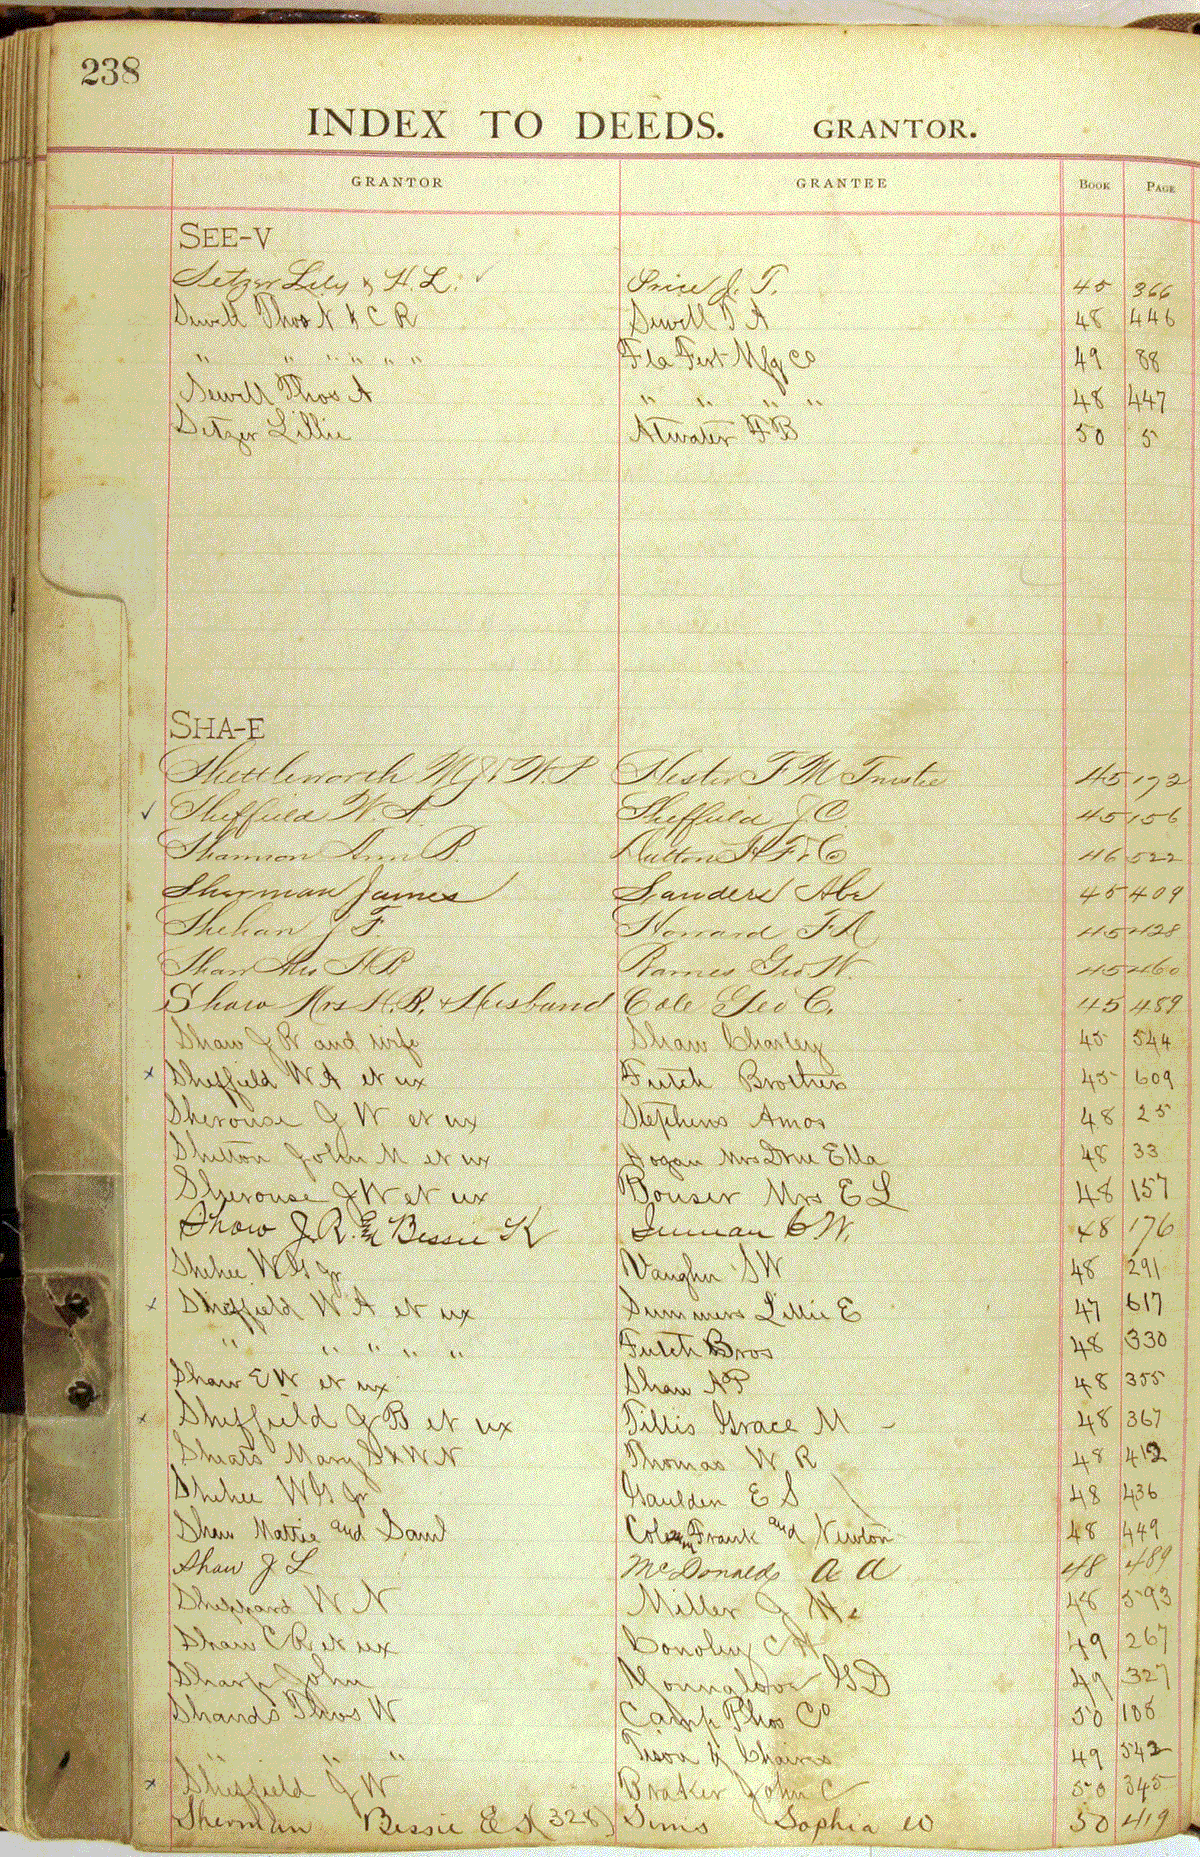 238
INDEX TO DEEDS. GRANTOR.
GRANTOR GRANTEE BOOK PAGE
SEE-V
Setzer Lily & H. L. Price J. T. 45 366
Sewell Thos N & C R Sewell T A 48 446
" " " " " " Fla Fert Mfg Co 49 88
Sewell Thos A " " " " 48 447
Setzer Lillie Atwater F B 50 5
SHA-E
Shettleworth M J & W. S. Hester F M Trustee 45 172
✓ Sheffield W. A. Sheffield J C. 45 156
Shannon Ann B. Dutton H. F. & Co 46 522
Sherman James Sanders Abe 45 409
Shehan J F. Howard F A 45 428
Shaw Mrs H B Barnes Geo W. 45 460
Shaw Mrs H. B. & Husband Cole Geo C. 45 489
Shaw J R and wife Shaw Charley 45 544
x Sheffield W A et ux Futch Brothers 45 609
Sherouse J W et ux Stephens Amos 48 25
Shelton John M et ux Hogan Mrs Ella 48 33
Sherouse J W et ux Bouser Mrs E L 48 157
Shaw J. R. & Bessie K Inman C W. 48 176
Shehee W G Jr Vaughn S W 48 291
x Sheffield W A et ux Summers Lillie E 47 617
" " " " " Futch Bros 48 330
Shaw E W et ux Shaw A P 48 355
x Sheffield J B et ux Tillis Grace M - 48 367
Shears Mary & W N Thomas W R 48 412
Shehee W G Jr Gaulden E S 48 436
Shaw Mattie and Saml Frank and Newton 48 449
Shaw J L McDonald A A 48 489
Sheppard W N Miller J H. 48 593
Shaw C R et ux Conoley C H 49 267
Sharp John Younglove G D 49 327
Shands Thos W Camp Phos Co 50 108
" " " Tison & Chaires 49 542
x Sheffield J W Braker John C 50 345
Sherman Bessie E (328) Sims Sophia W 50 419